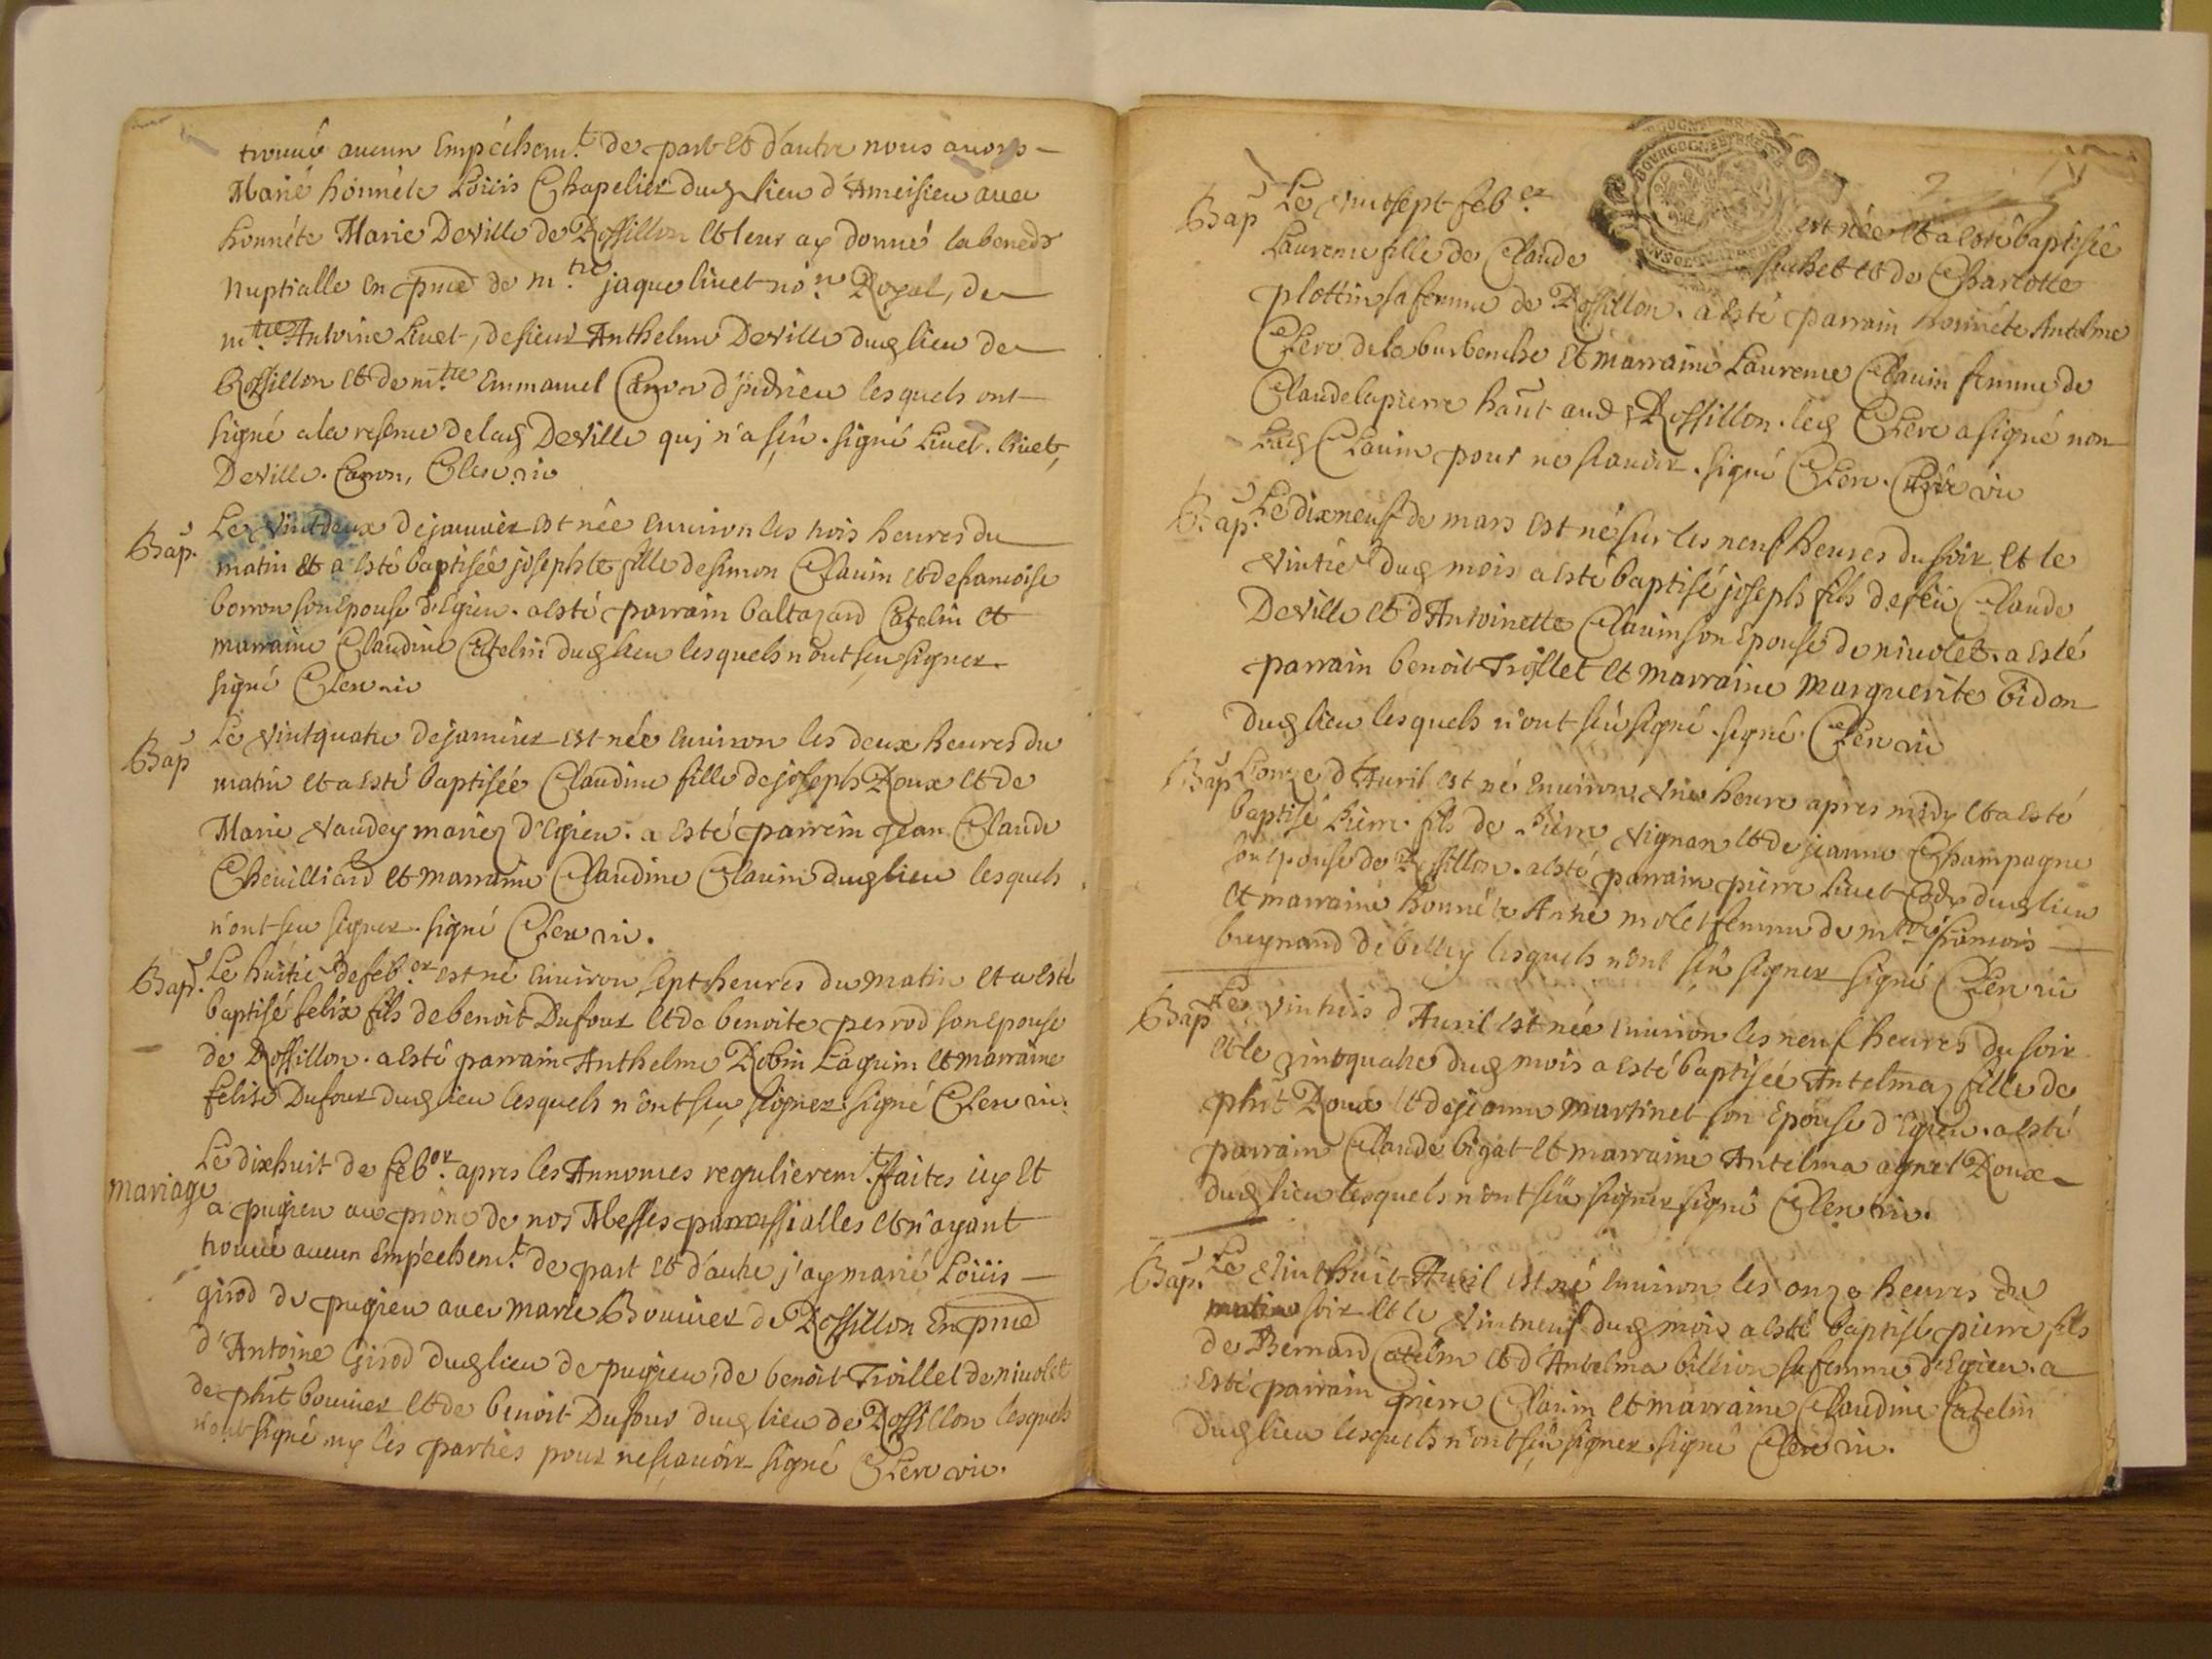 trouué aucun Empéchem.t de part et d'autre nous auons
Marié honnéte Loüis Chapelier dud lieu d'Ameisieu auec
honnéte Marie Deville de Rossillon et leur ay donné la bened
nuptialle en pnce de m.tre jaque liuet no.re Royal, de
m.tre Antoine Liuet, de sieur Anthelme Deville dud lieu de
Rossillon et de m.tre Emmanuel lesquels ont
signé a la reserue de lad Deville quj n'a sçû. signé Liuet. liuet,
Deville. Clerc vic
Bap. Le vint deux de januier est née enuiron les trois heures du
matin et a esté baptisée josephte fille de simon Clauin et de francoise
borron son Epouse d'Egieu. a esté parrain baltazard Catelin et
marraine Claudine Catelin dud lieu lesquels n'ont sçu signer.
signé Clerc vic
Bap Le vintquatre de januier est née enuiron les deux heures du
matin et a esté baptisée Claudine fille de joseph Roux et de
Marie Vaudey mariez d'Egieu. a esté parrein jean Claude
Cheuilliard et marraine Claudine Clauin dud lieu lesquels
n'ont sçu signer. signé Clerc vic.
Bap. Le huitie de feb.er est né enuiron sept heures du matin et a esté
baptisé felix fils de benoit Dufour et de benoite perrod son epouse
de Rossillon. a esté parrain Anthelme Robin Laguin et marraine
felise Dufour dud lieu lesquels n'ont sçu signer. signé Clerc vic.
Le dixhuit de feb.er apres les Annonces regulierem.t faites icy et
mariage a pugieu au prône de nos Messes paroissialles et n'ayant
trouué aucun Empéchem.t de part et d'autre j'ay marié Loüis
girod de pugieu auec marie Bouuier de Rossillon en pnce
d'Antoine Girod dud lieu de pugieu, de benoit Troillet de niuolet
de phit bouuier et de benoit Dufour dud lieu de Rossillon lesquels
n'ont signé ny les parties pour ne sçauoir signé Clerc vic.
Bap Le vintsept feb.er est née et a esté baptisée
Laurence fille de Claude suchet et de Charlotte
plottin sa femme de Rossillon. a esté parrain honnéte Antelme
Clerc de la burbanche et marraine Laurence Clauin femme de
Claude lapierre Rossillon. led Clerc a signé non
lad Clauin pour ne scauoir. signé Clerc. Clerc vic
Bap. Le dixneuf de mars est né sur les neuf heures du soir et le
vintie dud mois a esté baptisé joseph fils de feu Claude
Deville et d'Antoinette Clauin son Epouse de niuolet. a esté
parrain benoit Troillet et marraine marguerite bidon
dud lieu lesquels n'ont sçû signé. signé Clerc vic
Bap L'onze d'Auril est né enuiron vne heure apres midy et a esté
baptisé Pierre fils de Pierre Vignan et de jeanne Champagne
son epouse de Rossillon. a esté parrain pierre liuet dud lieu
et marraine honnéte Anne molet femme de m.tre francois
buynand de belley lesquels n'ont sçû signer signé Clerc vic
Bap Le vintrois d'Auril est née enuiron les neuf heures du soir
et le vintquatre dud mois a esté baptisée Antelma fille de
phit Roux et de jeanne martinet son Epouse d'Egieu. a esté
parrain Claude bigat et marraine Antelma Roux
dud lieu lesquels n'ont sçû signer signé Clerc vic.
Bap. Le vinthuit Auril est né enuiron les onze heures du
matin soir et le vintneuf dud mois a esté baptisé pierre fils
de Bernard Catelin et d'Antelma billion sa femme d'Egieu. a
esté parrain pierre Clauin et marraine Claudine Catelin
dud lieu lesquels n'ont sçû signer. signé Clerc vic.